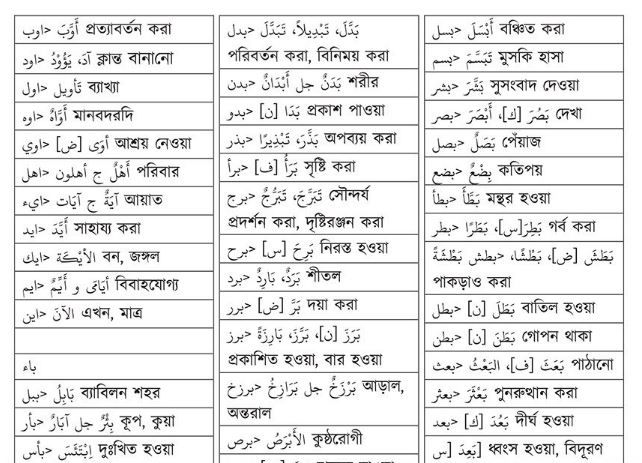 اوب> أَوَّبَ প্রত্যাবর্তন করা
اود> آدَ، يَؤُوْدُ ক্লান্ত বানানো
اول> تَأويل ব্যাখ্যা
اوه> أَوَّاهٌ মানবদরদি
اوي> أَوَى [ض] আশ্রয় নেওয়া
اهل> أَهْلٌ ج أهلون পরিবার
ايء> آيَةٌ ج آيَات আয়াত
ايد> أَيَّدَ সাহায্য করা
ايك> الأَيْكَة বন, জঙ্গল
ايم> أَيَاتى و أَيِّمٌ বিবাহযোগ্য
اين> الآنَ এখন, মাত্র
باء
ببل> بَابِلُ ব্যাবিলন শহর
بأر> بِئْرٌ جل آبَارٌ কূপ, কুয়া
بأس> اِبْتَئَسَ দুঃখিত হওয়া
بدل> بَدَّلَ، تَبْدِيلاً، تَبَدَّلَ
পরিবর্তন করা, বিনিময় করা
بدن> بَدَنٌ جل أَبْدَانٌ শরীর
بدو> [ن] بَدَا প্রকাশ পাওয়া
بذر> بَذَّرَ، تَبْذِيرًا অপব্যয় করা
برأ> [ف] بَرَأَ সৃষ্টি করা
برج> تَبَرَّجَ، تَبَرُّجٌ সৌন্দর্য
প্রদর্শন করা, দৃষ্টিরঞ্জন করা
برح> [س] بَرِحَ নিরস্ত হওয়া
برد> بَرَدٌ، بَارِدٌ শীতল
برر> [ض] بَرَّ দয়া করা
برز> بَرَزَ [ن]، بَرَّزَ، بَارِزَةٌ
প্রকাশিত হওয়া, বার হওয়া
برزخ> بَرْزَخٌ جل بَرَازِخُ আড়াল,
অন্তরাল
برص> الأَبْرَصُ কুষ্ঠরোগী
بسل> أَبْسَلَ বঞ্চিত করা
بسم> تَبَسَّمَ মুসকি হাসা
بشر> بَشَّرَ সুসংবাদ দেওয়া
بصر> بَصُرَ [ك]، أَبْصَرَ দেখা
بصل> بَصَلٌ পেঁয়াজ
بضع> بِضْعٌ কতিপয়
بطأ> بَطَّأَ মন্থর হওয়া
بطر> بَطِرَ[س]، بَطَرًا গর্ব করা
بطش> بَطَشَ [ض]، بَطْشًا، بَطْشَةً
পাকড়াও করা
بطل> [ن] بَطَلَ বাতিল হওয়া
بطن> [ن] بَطَنَ গোপন থাকা
بعث> بَعَثَ [ف]، البَعْثُ পাঠানো
بعثر> بَعْثَرَ পুনরুত্থান করা
بعد> [ك] بَعُدَ দীর্ঘ হওয়া
بعد> بَعِدَ [س] ধ্বংস হওয়া, বিদূরণ